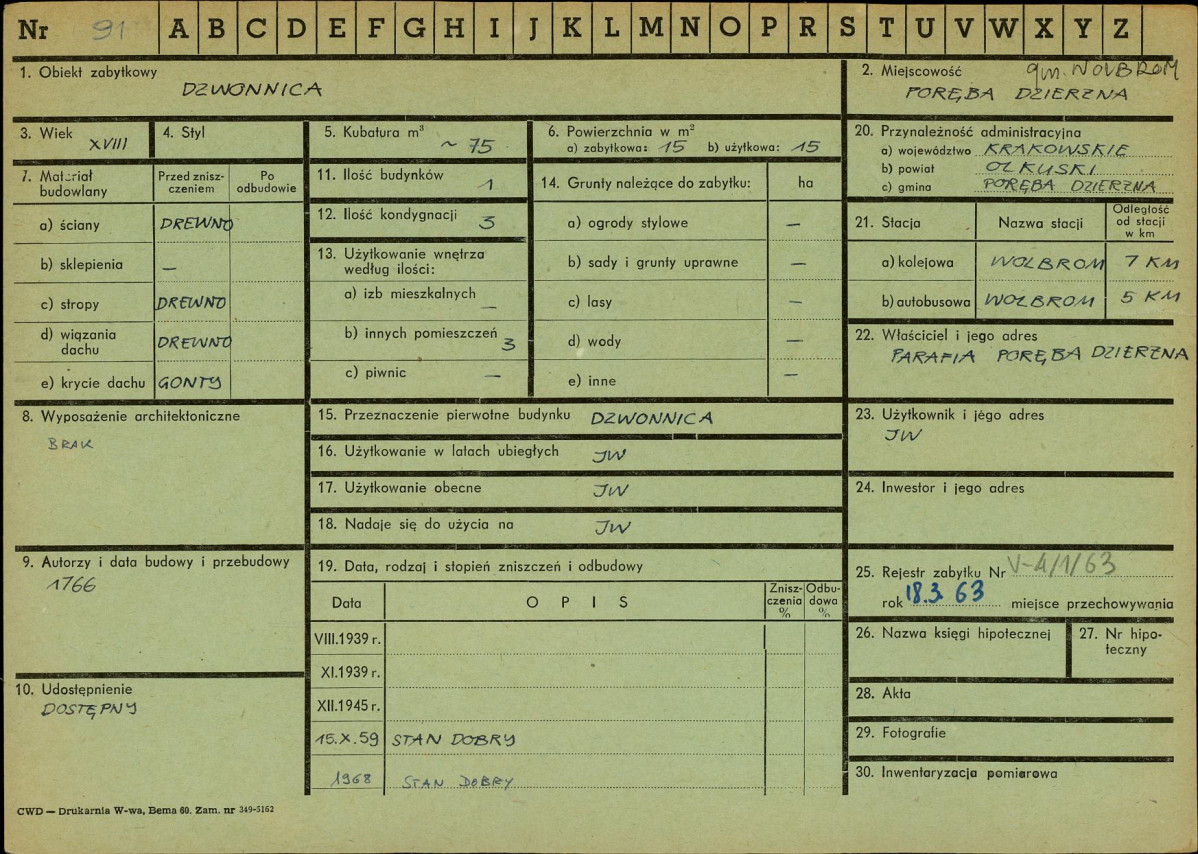 Nr 91 A B C D E F G H I J K L M N O P R S T U V W X Y Z
1. Obiekt zabytkowy
DZWONNICA
2. Miejscowość gm. WOLBROM
PORĘBA DZIERZNA
3. Wiek
XVIII
4. Styl
5. Kubatura m³
~ 75
6. Powierzchnia w m²
a) zabytkowa: 15 b) użytkowa: 15
7. Materiał budowlany
Przed znisz-
czeniem
Po
odbudowie
a) ściany DREWNO
b) sklepienia —
c) stropy DREWNO
d) wiązania
dachu DREWNO
e) krycie dachu GONTY
8. Wyposażenie architektoniczne
BRAK
9. Autorzy i data budowy i przebudowy
1766
10. Udostępnienie
DOSTĘPNY
11. Ilość budynków 1
12. Ilość kondygnacji 3
13. Użytkowanie wnętrza
według ilości:
a) izb mieszkalnych —
b) innych pomieszczeń 3
c) piwnic —
14. Grunty należące do zabytku: ha
a) ogrody stylowe —
b) sady i grunty uprawne —
c) lasy —
d) wody —
e) inne —
15. Przeznaczenie pierwotne budynku DZWONNICA
16. Użytkowanie w latach ubiegłych JW
17. Użytkowanie obecne JW
18. Nadaje się do użycia na JW
19. Data, rodzaj i stopień zniszczeń i odbudowy
Data
OPIS
Znisz-
czenia
%
Odbu-
dowa
%
VIII.1939 r.
XI.1939 r.
XII.1945 r.
15.X.59 STAN DOBRY
1968 STAN DOBRY
20. Przynależność administracyjna
a) województwo KRAKOWSKIE
b) powiat OLKUSKI
c) gmina PORĘBA DZIERZNA
21. Stacja
Nazwa stacji
Odległość
od stacji
w km
a) kolejowa WOLBROM 7 KM
b) autobusowa WOLBROM 5 KM
22. Właściciel i jego adres
PARAFIA PORĘBA DZIERZNA
23. Użytkownik i jego adres
JW
24. Inwestor i jego adres
25. Rejestr zabytku Nr V-4/1/63
rok 18.3.63 miejsce przechowywania
26. Nazwa księgi hipotecznej
27. Nr hipo-
teczny
28. Akta
29. Fotografie
30. Inwentaryzacja pomiarowa
CWD — Drukarnia W-wa, Bema 60. Zam. nr 349-5162